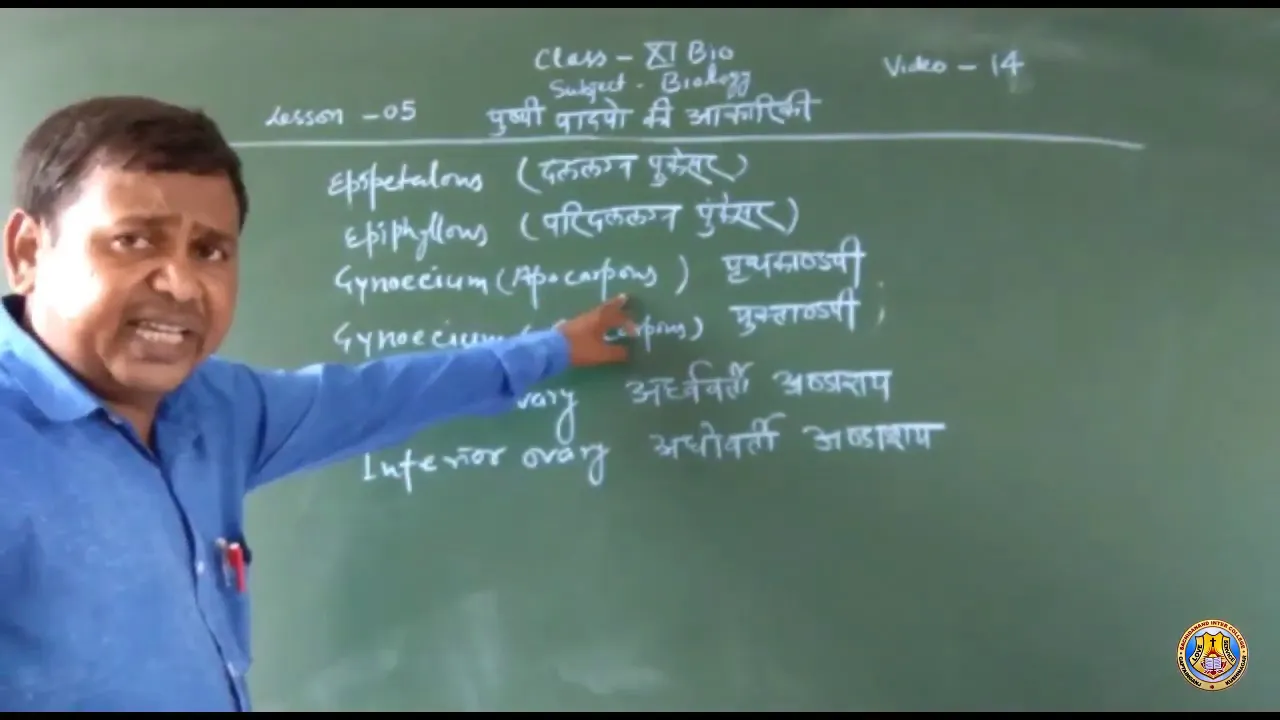 Class - XI Bio
Video - 14
Subject - Biology
Lesson - 05 पुष्पी पादपो की आकारिकी
Epipetalous (दललग्न पुंकेसर)
Epiphyllous (परिदललग्न पुंकेसर)
Gynoecium (Apocarpous) पृथकाण्डपी
Gynoecium ( carpous) युक्ताण्डपी ;
vary अर्धवर्ती अण्डाशय
Inferior ovary अधोवर्ती अण्डाशय